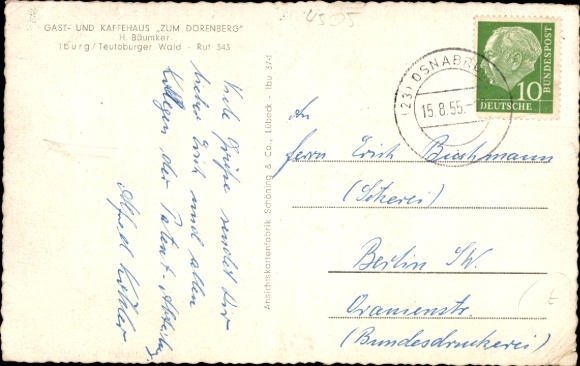 4505
GAST- UND KAFFEHAUS „ZUM DORENBERG"
H. Bäumker
Iburg/Teutoburger Wald - Ruf 343
Viele Grüße sendet Dir
lieber Erich und allen
Kollegen der
Alfred
Ansichtskartenfabrik Schöning & Co., Lübeck - Ibu 37
(23) OSNABRÜ
15.8.55.-
10
DEUTSCHE
BUNDESPOST
An
Herrn Erich Buschmann
(Setzerei)
Berlin SW.
Oranienstr.
(Bundesdruckerei)